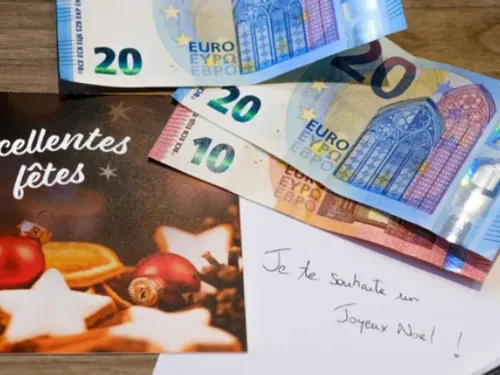 20
EURO
ΕΥΡΩ
ЕВРО
20
20
EURO
ΕΥΡΩ
ЕВРО
10
EURO
ΕΥΡΩ
ЕВРО
cellentes
fêtes
Je te souhaite un
Joyeux Noël !